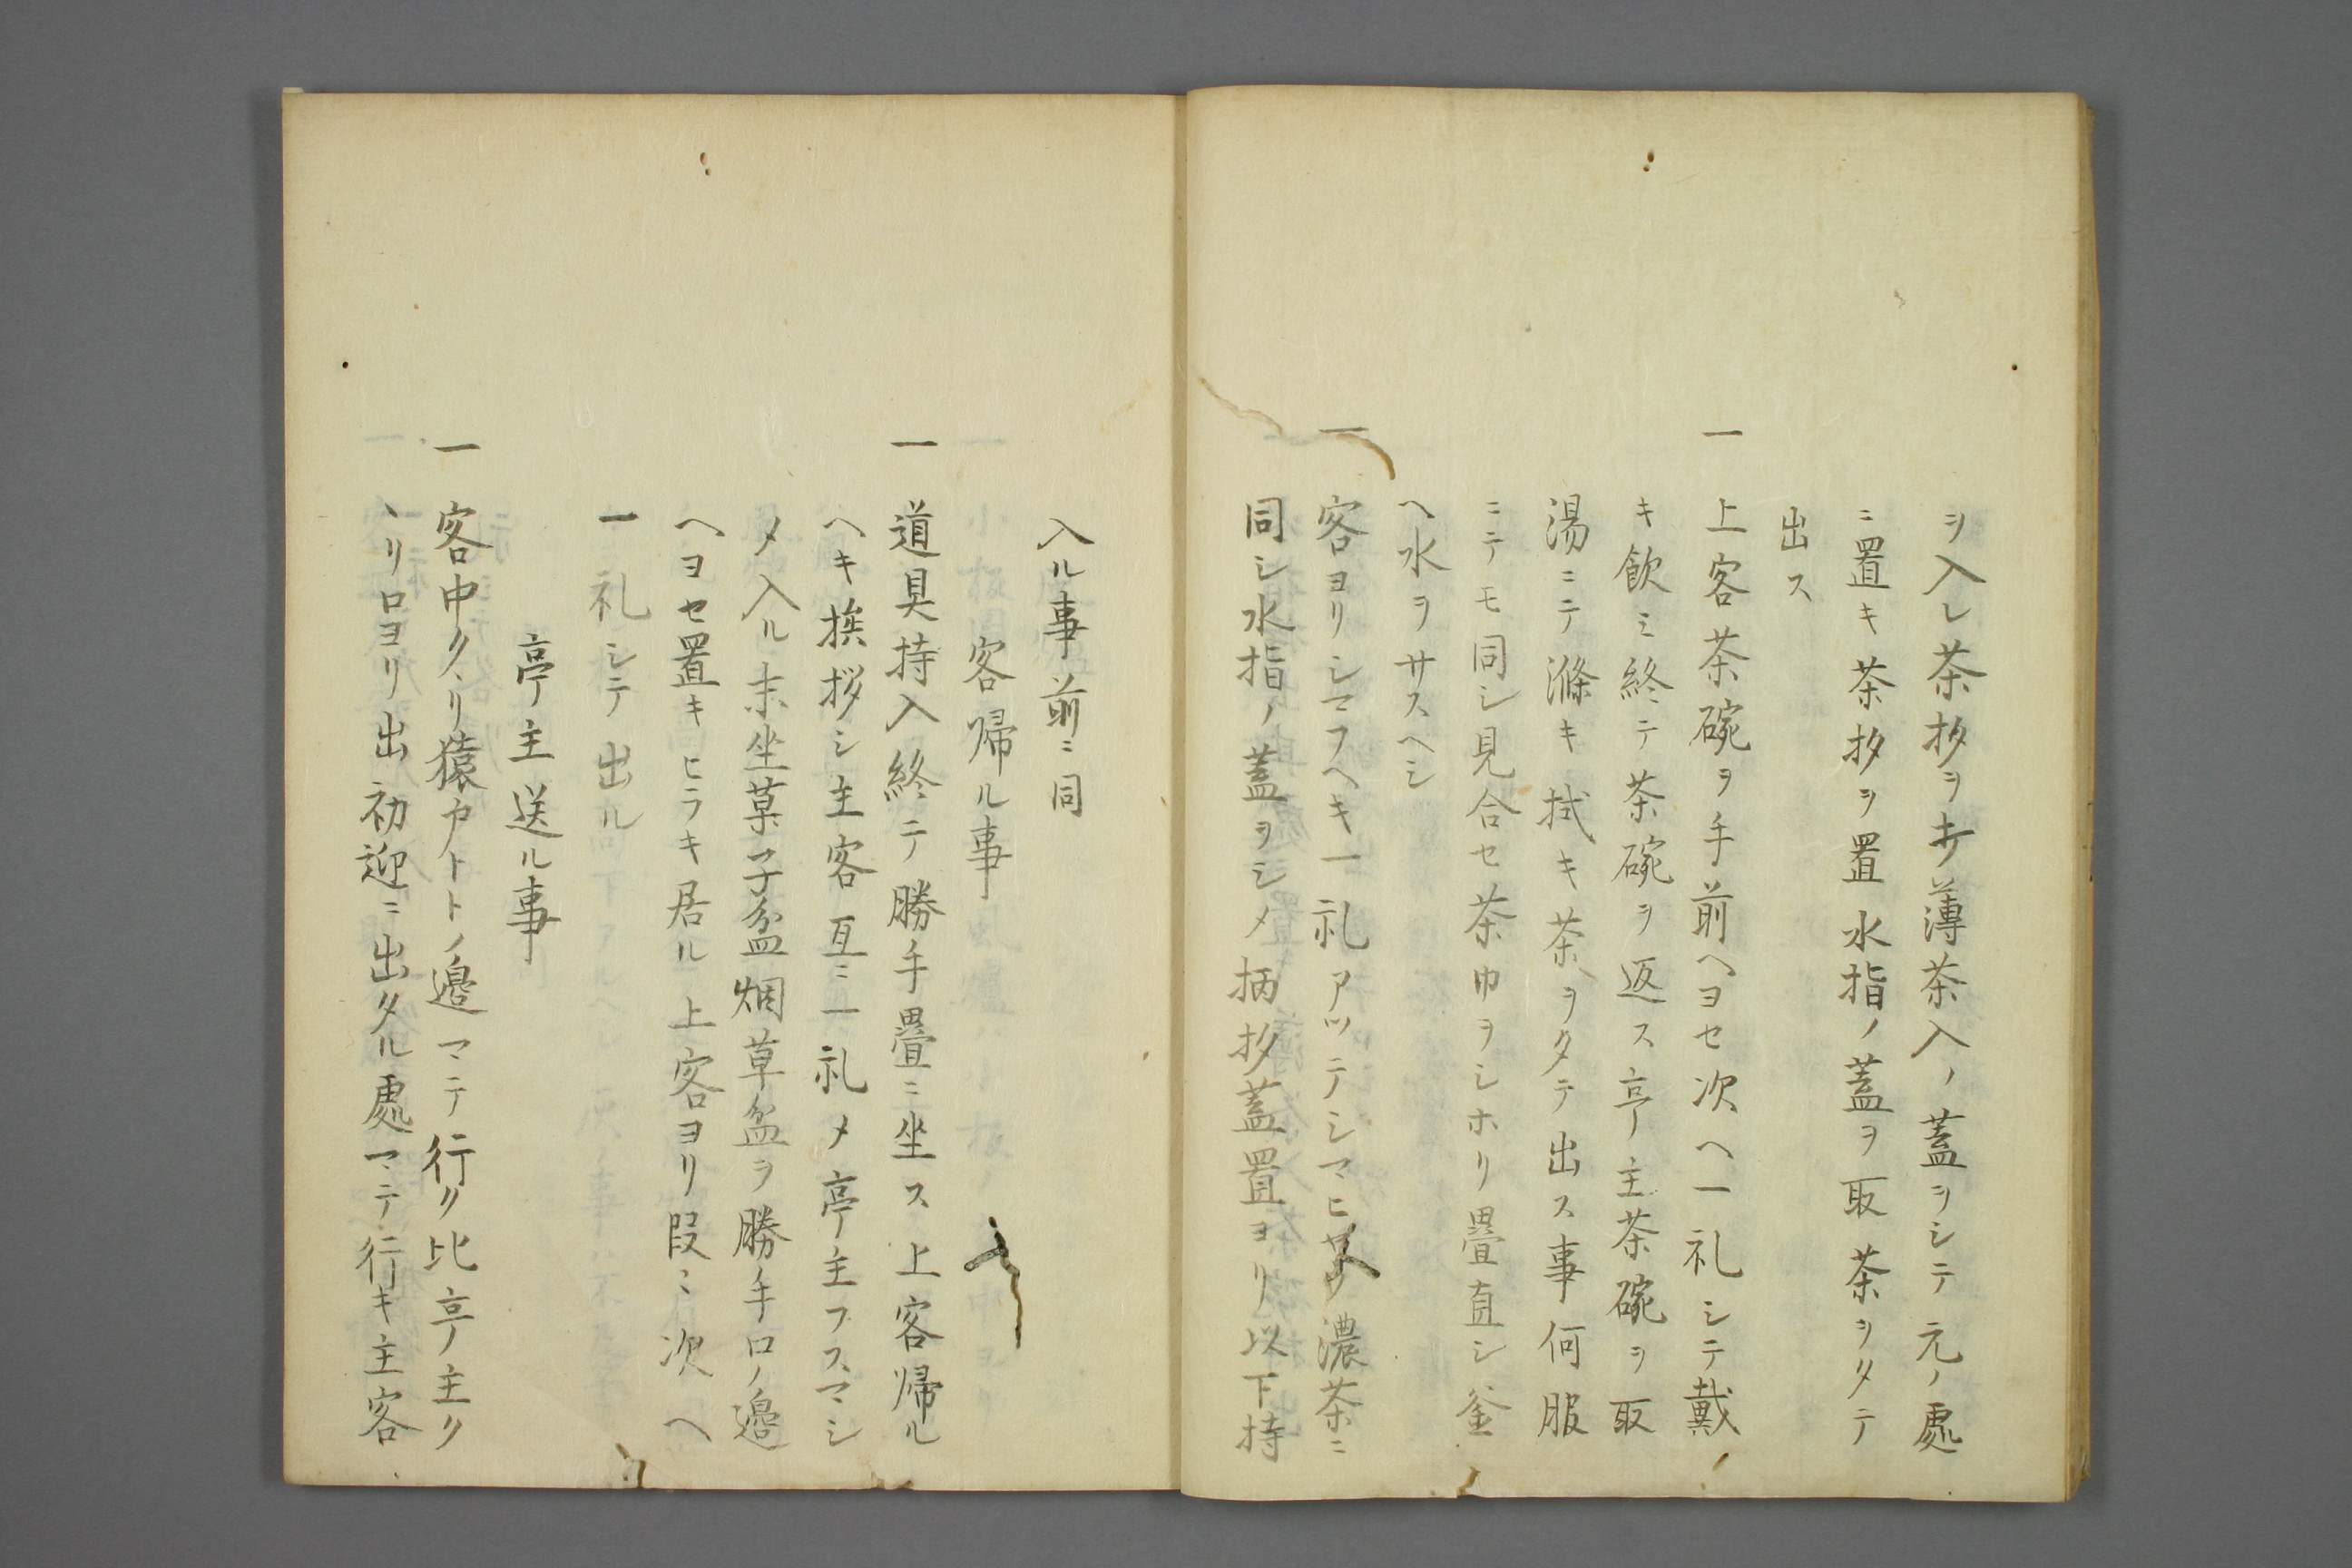 ヲ入レ茶抄ヲキ薄茶入ノ蓋ヲシテ元ノ處
ニ置キ茶抄ヲ置水指ノ蓋ヲ取茶ヲタテ
出ス
一 上客茶碗ヲ手前ヘヨセ次ヘ一礼シテ戴
キ飲ミ終テ茶碗ヲ返ス亭主茶碗ヲ取
湯ニテ滌キ拭キ茶ヲタテ出ス事何服
ニテモ同シ見合セ茶巾ヲシホリ畳直シ釜
ヘ水ヲサスヘシ
一 客ヨリシマフヘキ一礼アツテシマヒ濃茶ニ
同シ水指ノ蓋ヲシメ柄抄蓋置ヨリ以下持
入ル事前ニ同
客帰ル事
一 道具持入終テ勝手畳ニ坐ス上客帰ル
ヘキ挨拶シ主客互ニ一礼メ亭主フスマシ
メ入ル末坐菓子盆烟草盆ヲ勝手口ノ邉
ヘヨセ置キヒラキ居ル上客ヨリ段ミ次ヘ
一礼シテ出ル
亭主送ル事
一 客中クヽリ猿戸トノ邉マテ行ク比亭主ク
ヽリ口ヨリ出初迎ニ出タル處マテ行キ主客